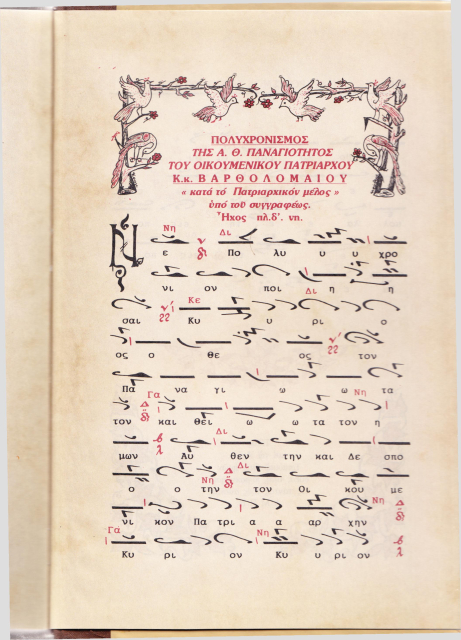 ΠΟΛΥΧΡΟΝΙΣΜΟΣ
ΤΗΣ Α. Θ. ΠΑΝΑΓΙΟΤΗΤΟΣ
ΤΟΥ ΟΙΚΟΥΜΕΝΙΚΟΥ ΠΑΤΡΙΑΡΧΟΥ
Κ.κ. ΒΑΡΘΟΛΟΜΑΙΟΥ
« κατά τό Πατριαρχικόν μέλος »
ὑπό τοῦ συγγραφέως.
Ἦχος πλ.δ'. νη.
Νη Δι
Ν ε Πο λυ υ υ χρο
Δι
νι ον ποι η η
Κε
σαι Κυ υ ρι ο
ος ο θε ος τον
Πα να γι ω ω τα
Γα Νη
τον και θει ω ω τα τον η
Δι
μων Αυ θεν την και Δε σπο
Νη Δι
ο ο την τον Οι κου με
Νη
νι κον Πα τρι α α αρ χην
Γα Νη
Κυ ρι ον Κυ υ ρι ον